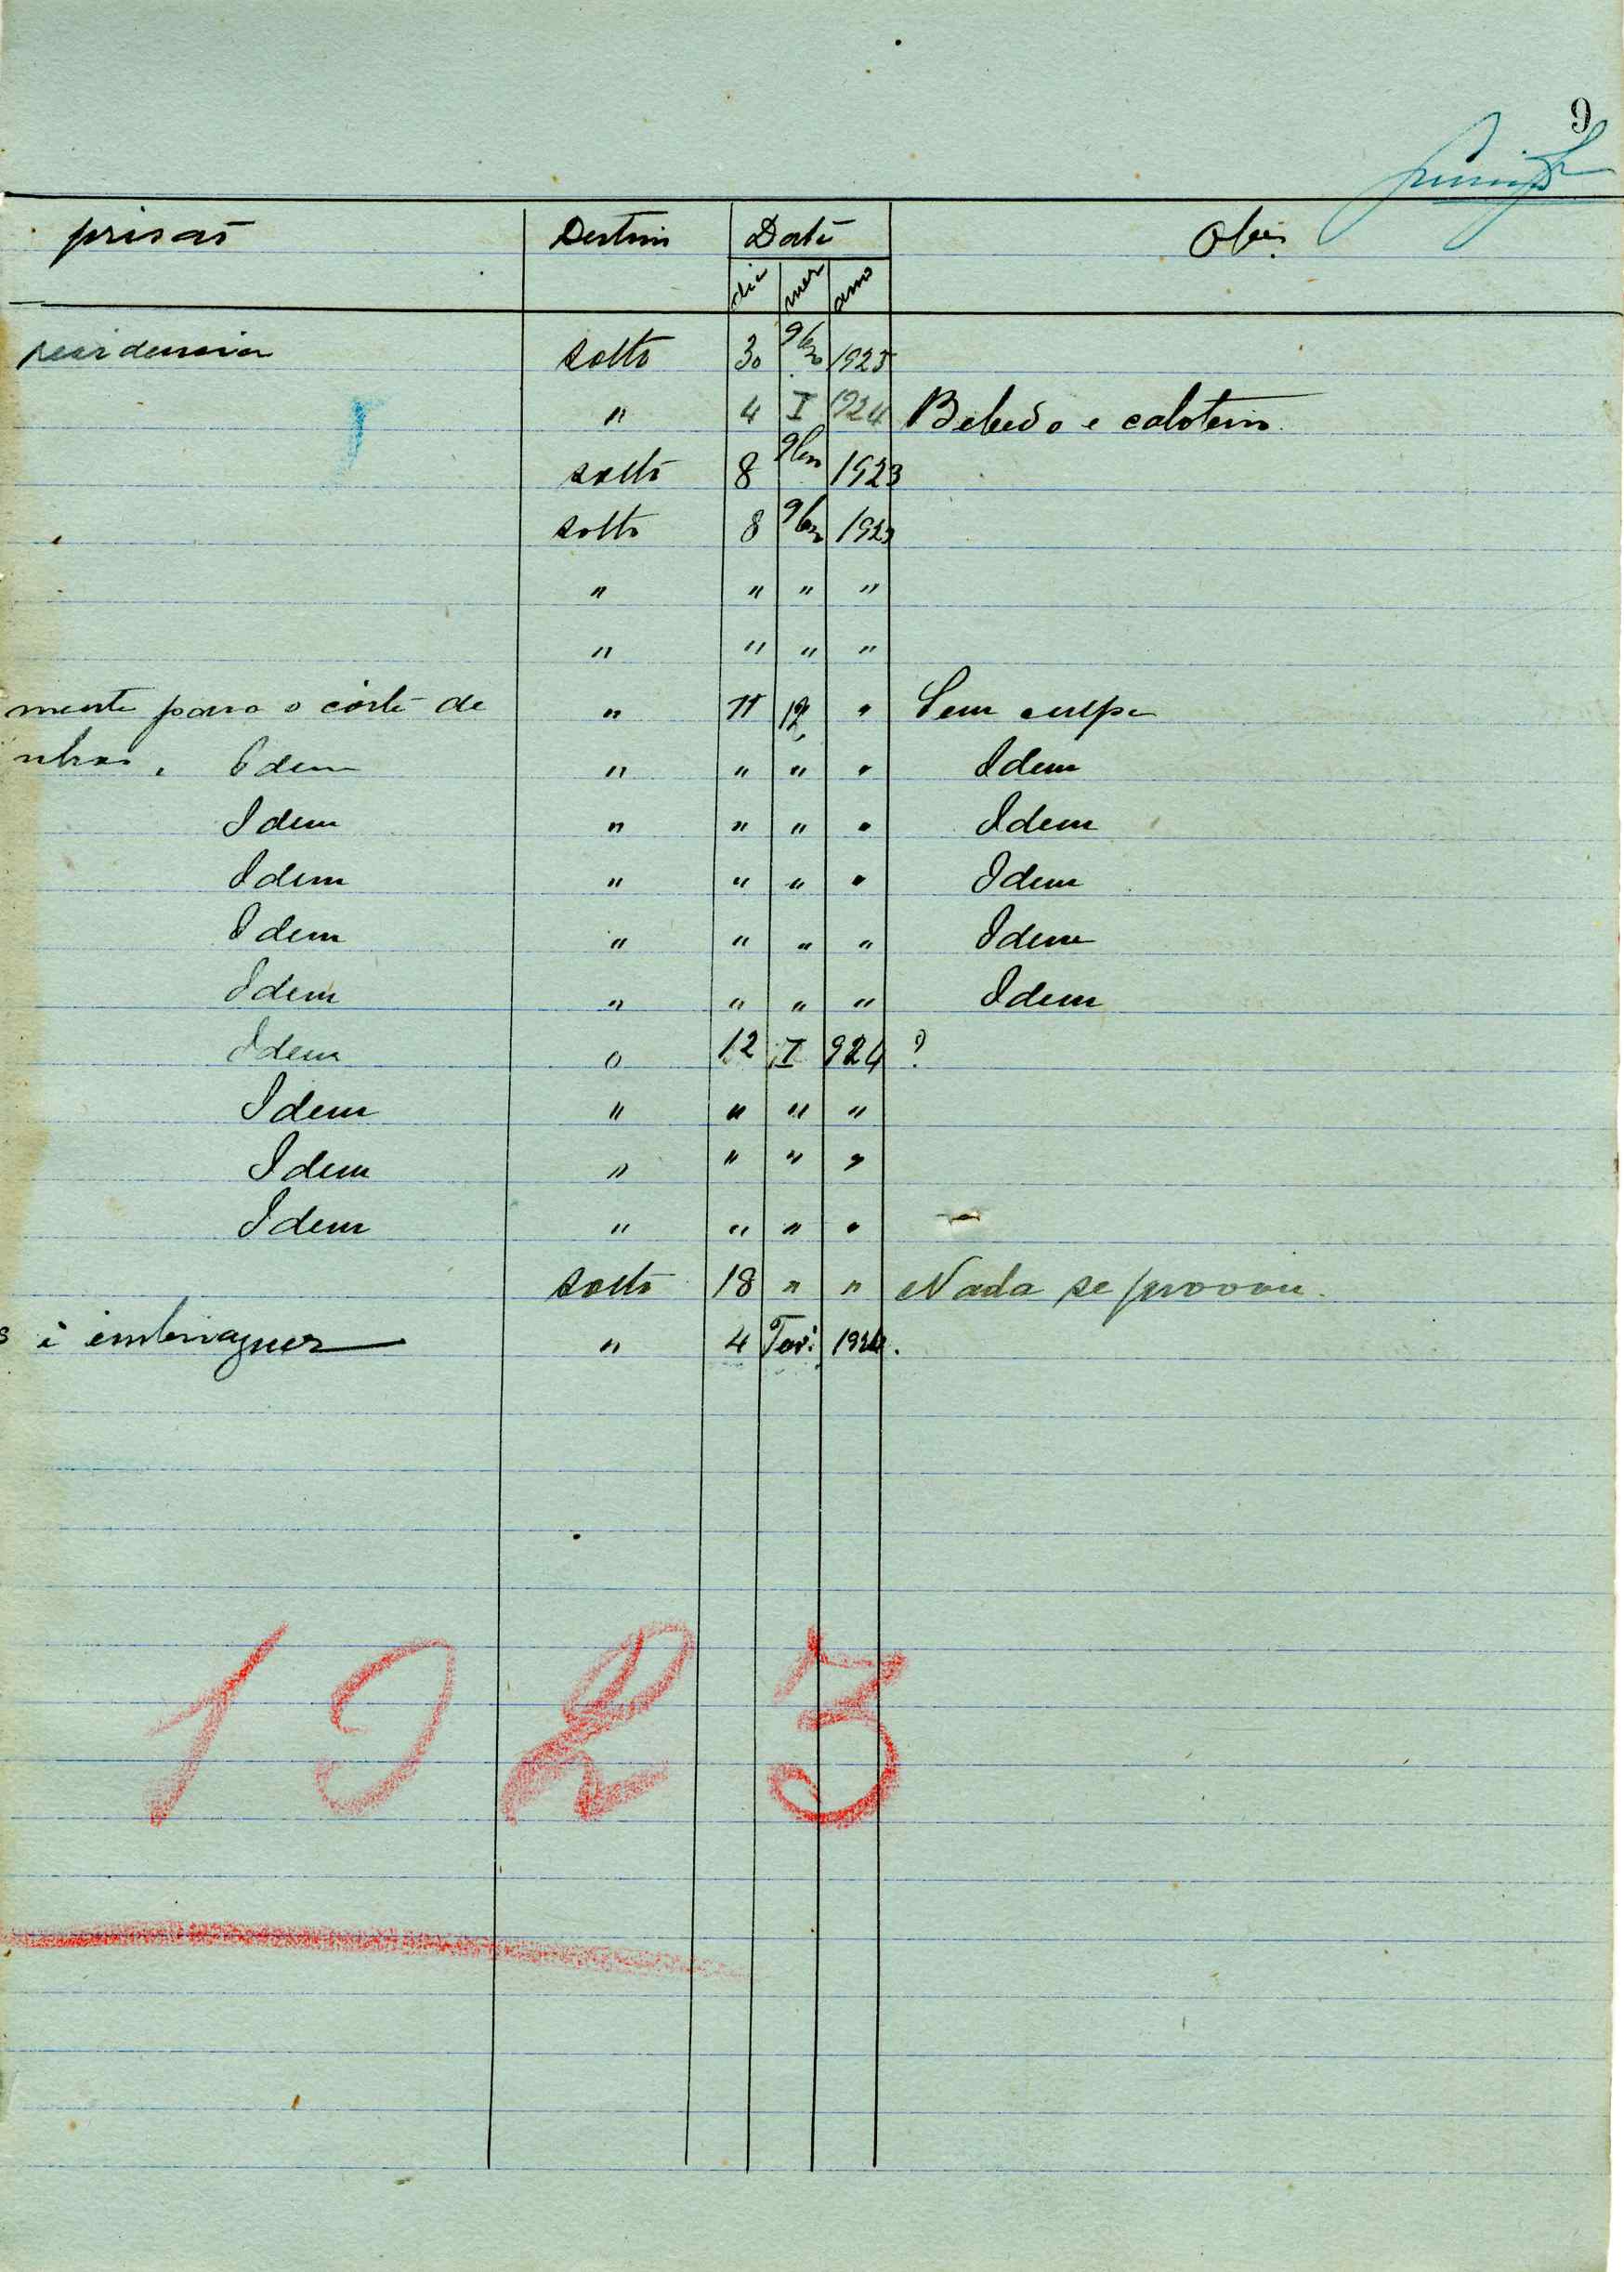 9
prisão Destino Data Obs.
dia mez ano
solto 30 9bro 1923
" 4 I 1924 Bebedo e caloteiro.
solto 8 9bro 1923
solto 8 9bro 1923
" " " "
" " " "
mente para o córte de " 11 12 " Sem culpa
nhas. Idem " " " " Idem
Idem " " " " Idem
Idem " " " " Idem
Idem " " " " Idem
Idem " " " " Idem
Idem " 12 I 924 ?
Idem " " " "
Idem " " " "
Idem " " " "
solto 18 " " Nada se provou.
s e embriaguez " 4 1924.
1923